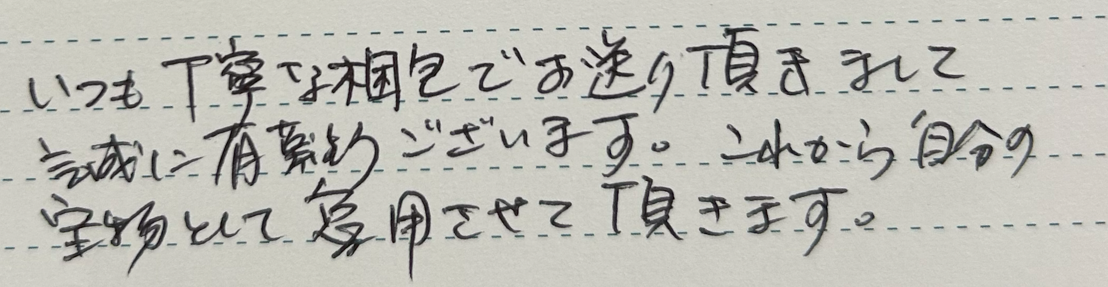 いつも丁寧な梱包でお送り頂きまして
誠に有難うございます。これから自分の
宝物として愛用させて頂きます。